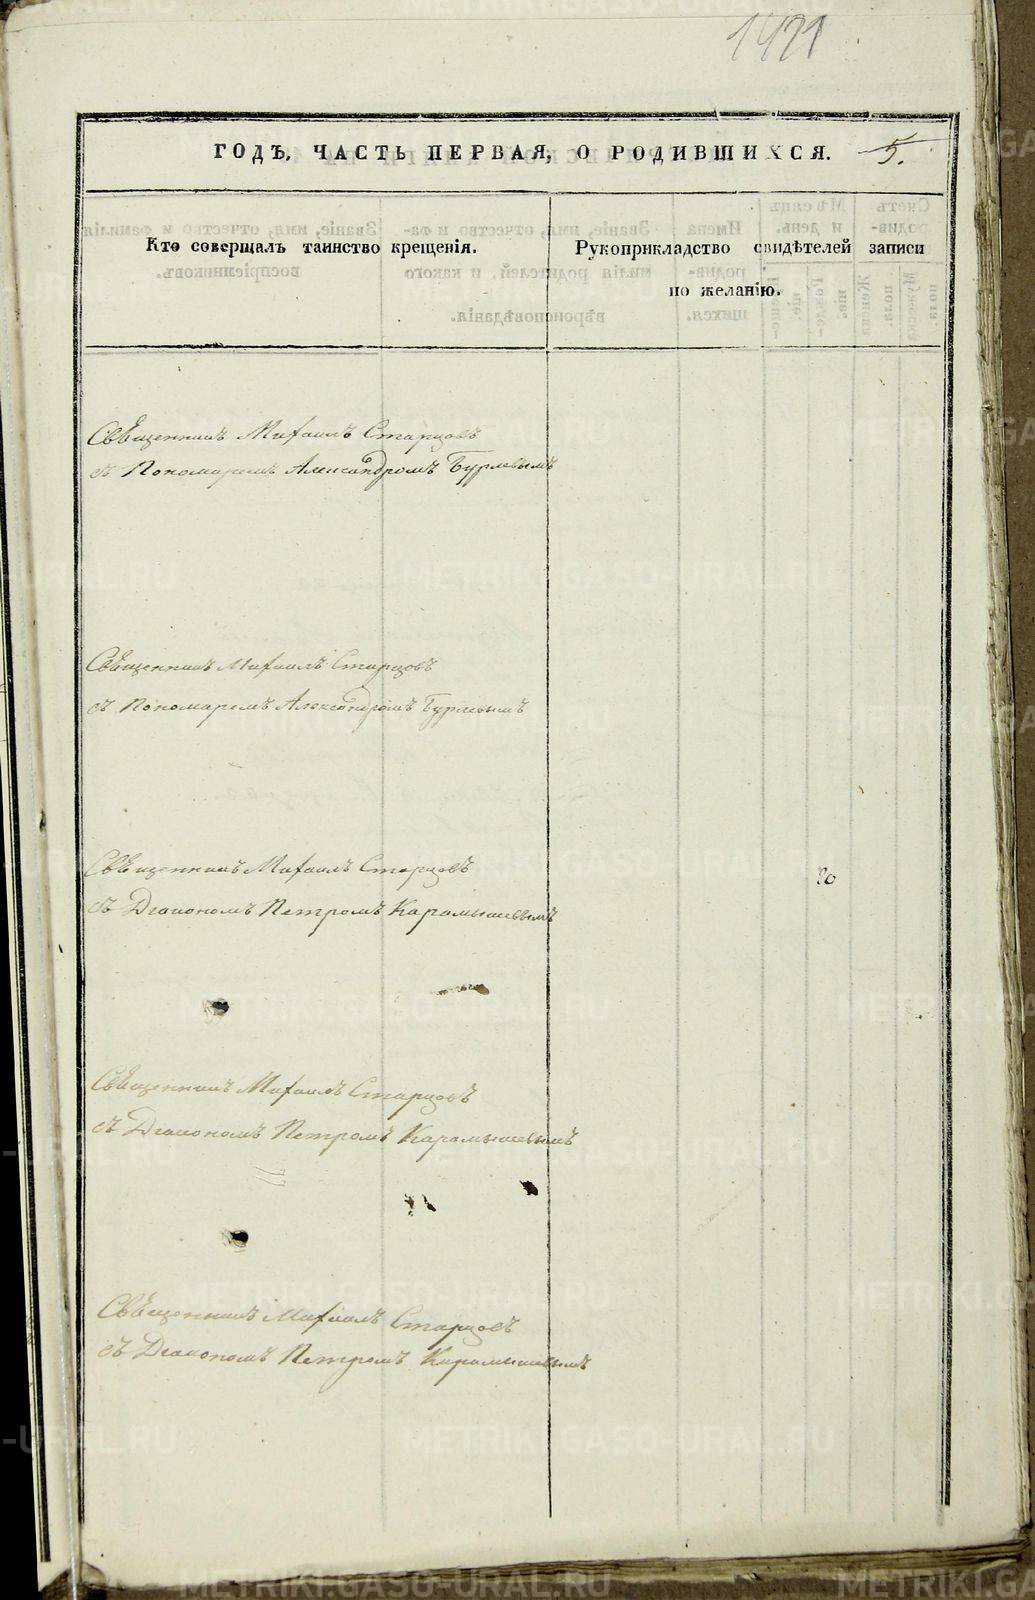 1421
ГОДЪ, ЧАСТЬ ПЕРВАЯ, О РОДИВШИХСЯ. 5.
Кто совершалъ таинство крещенія.
Рукоприкладство свидѣтелей записи
по желанію.
Священникъ Михаилъ Старцовъ
съ Пономаремъ Александромъ Бурлевымъ
Священникъ Михаилъ Старцовъ
съ Пономаремъ Александромъ Бурлевымъ
Священникъ Михаилъ Старцовъ
съ Діакономъ Петромъ Карамышевымъ
Священникъ Михаилъ Старцовъ
съ Діакономъ Петромъ Карамышевымъ
Священникъ Михаилъ Старцовъ
съ Діакономъ Петромъ Карамышевымъ
METRIKI.GASO-URAL.RU